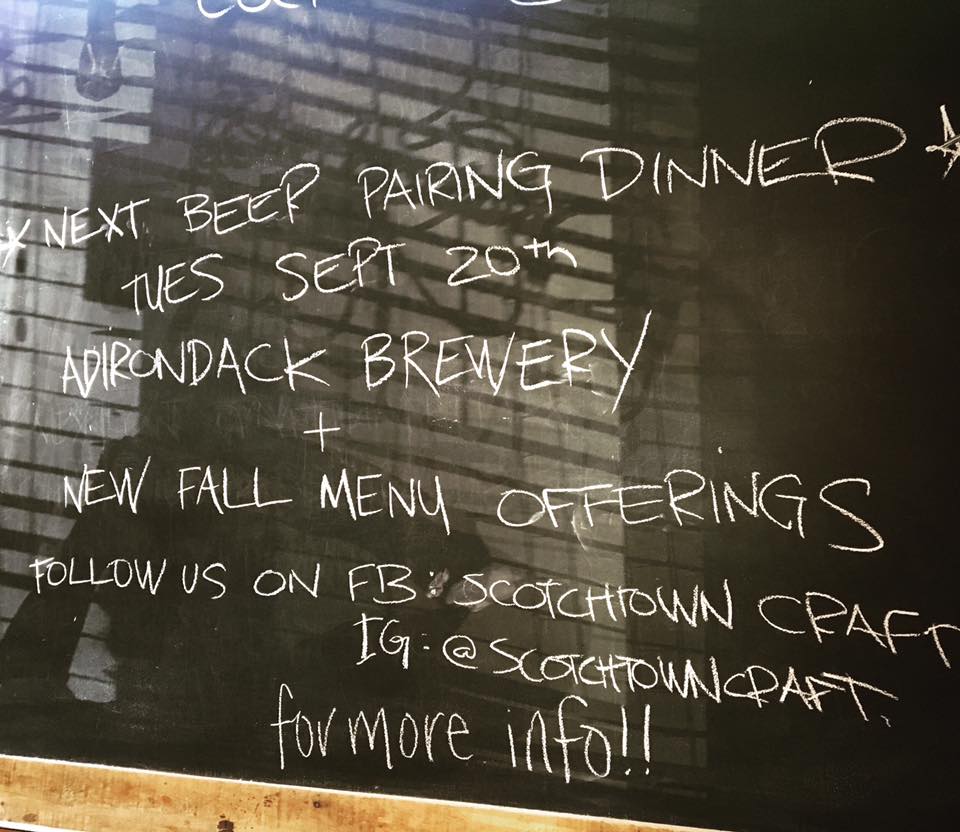 * NEXT BEER PAIRING DINNER *
TUES SEPT 20th
ADIRONDACK BREWERY
+
NEW FALL MENU OFFERINGS
FOLLOW US ON FB: SCOTCHTOWN CRAFT
IG: @SCOTCHTOWNCRAFT.
for more info!!